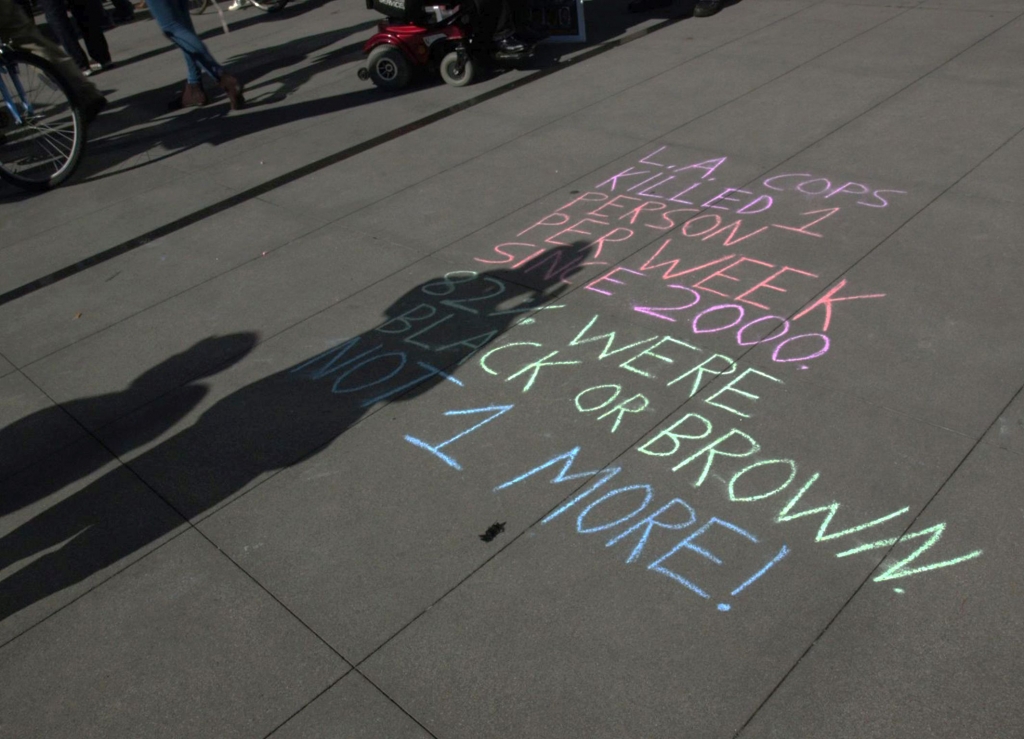 L.A. COPS
KILLED 1
PERSON
PER WEEK
SINCE 2000.
82% WERE
BLACK OR BROWN.
NOT 1 MORE!